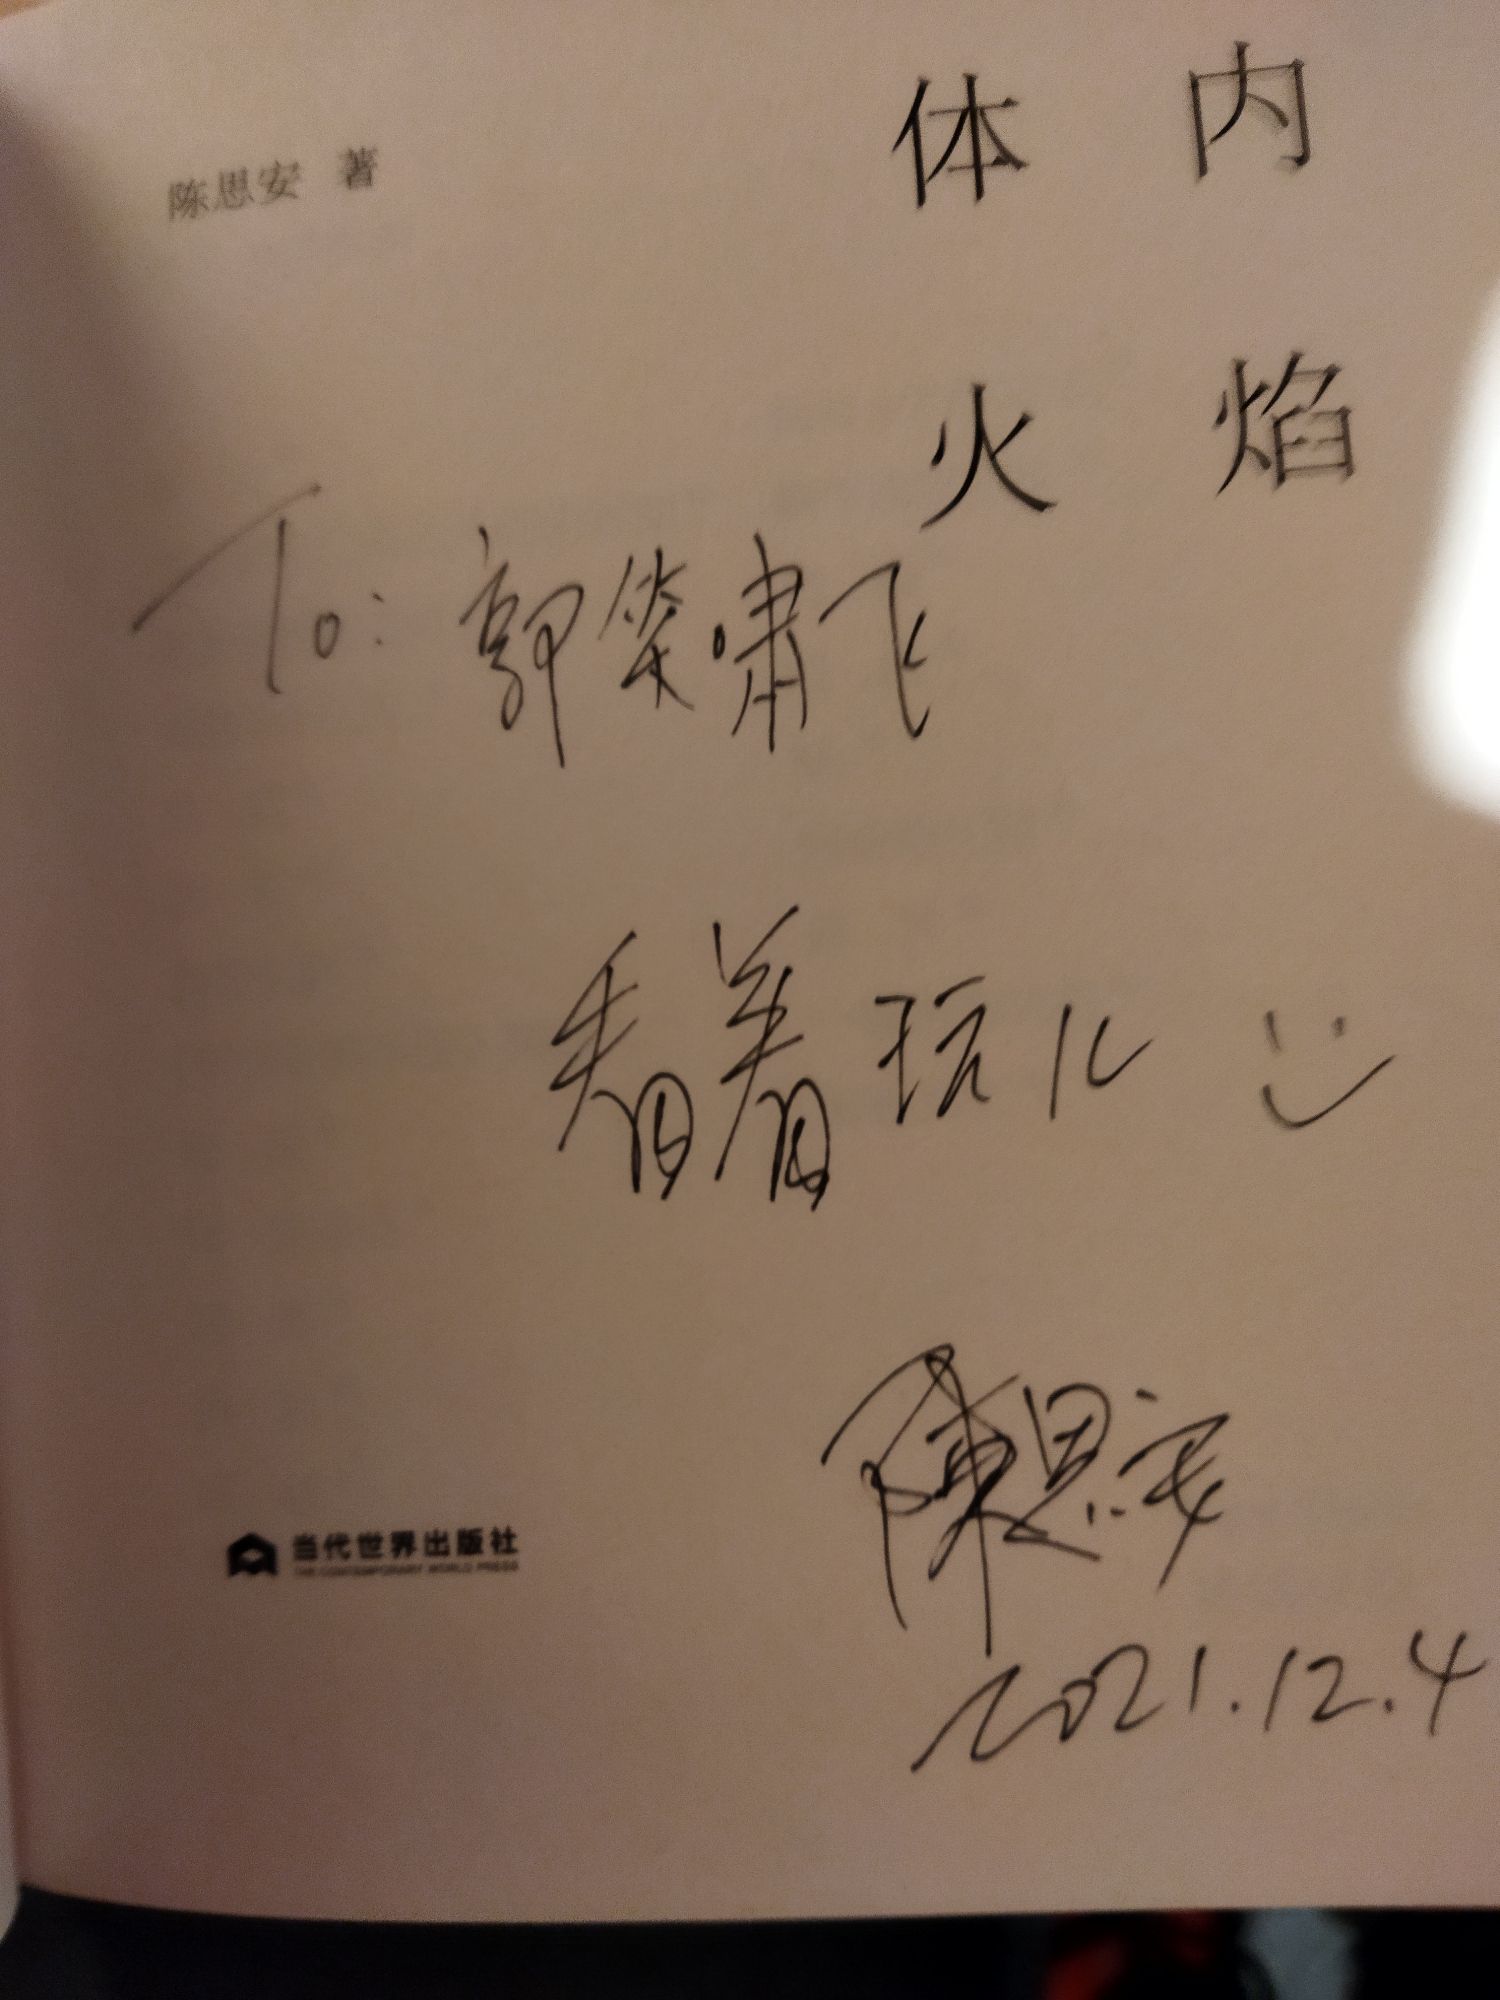 体内
陈思安 著
火焰
To: 郭笑啸飞
看着玩儿 :)
陳思安
2021.12.4
当代世界出版社
THE CONTEMPORARY WORLD PRESS